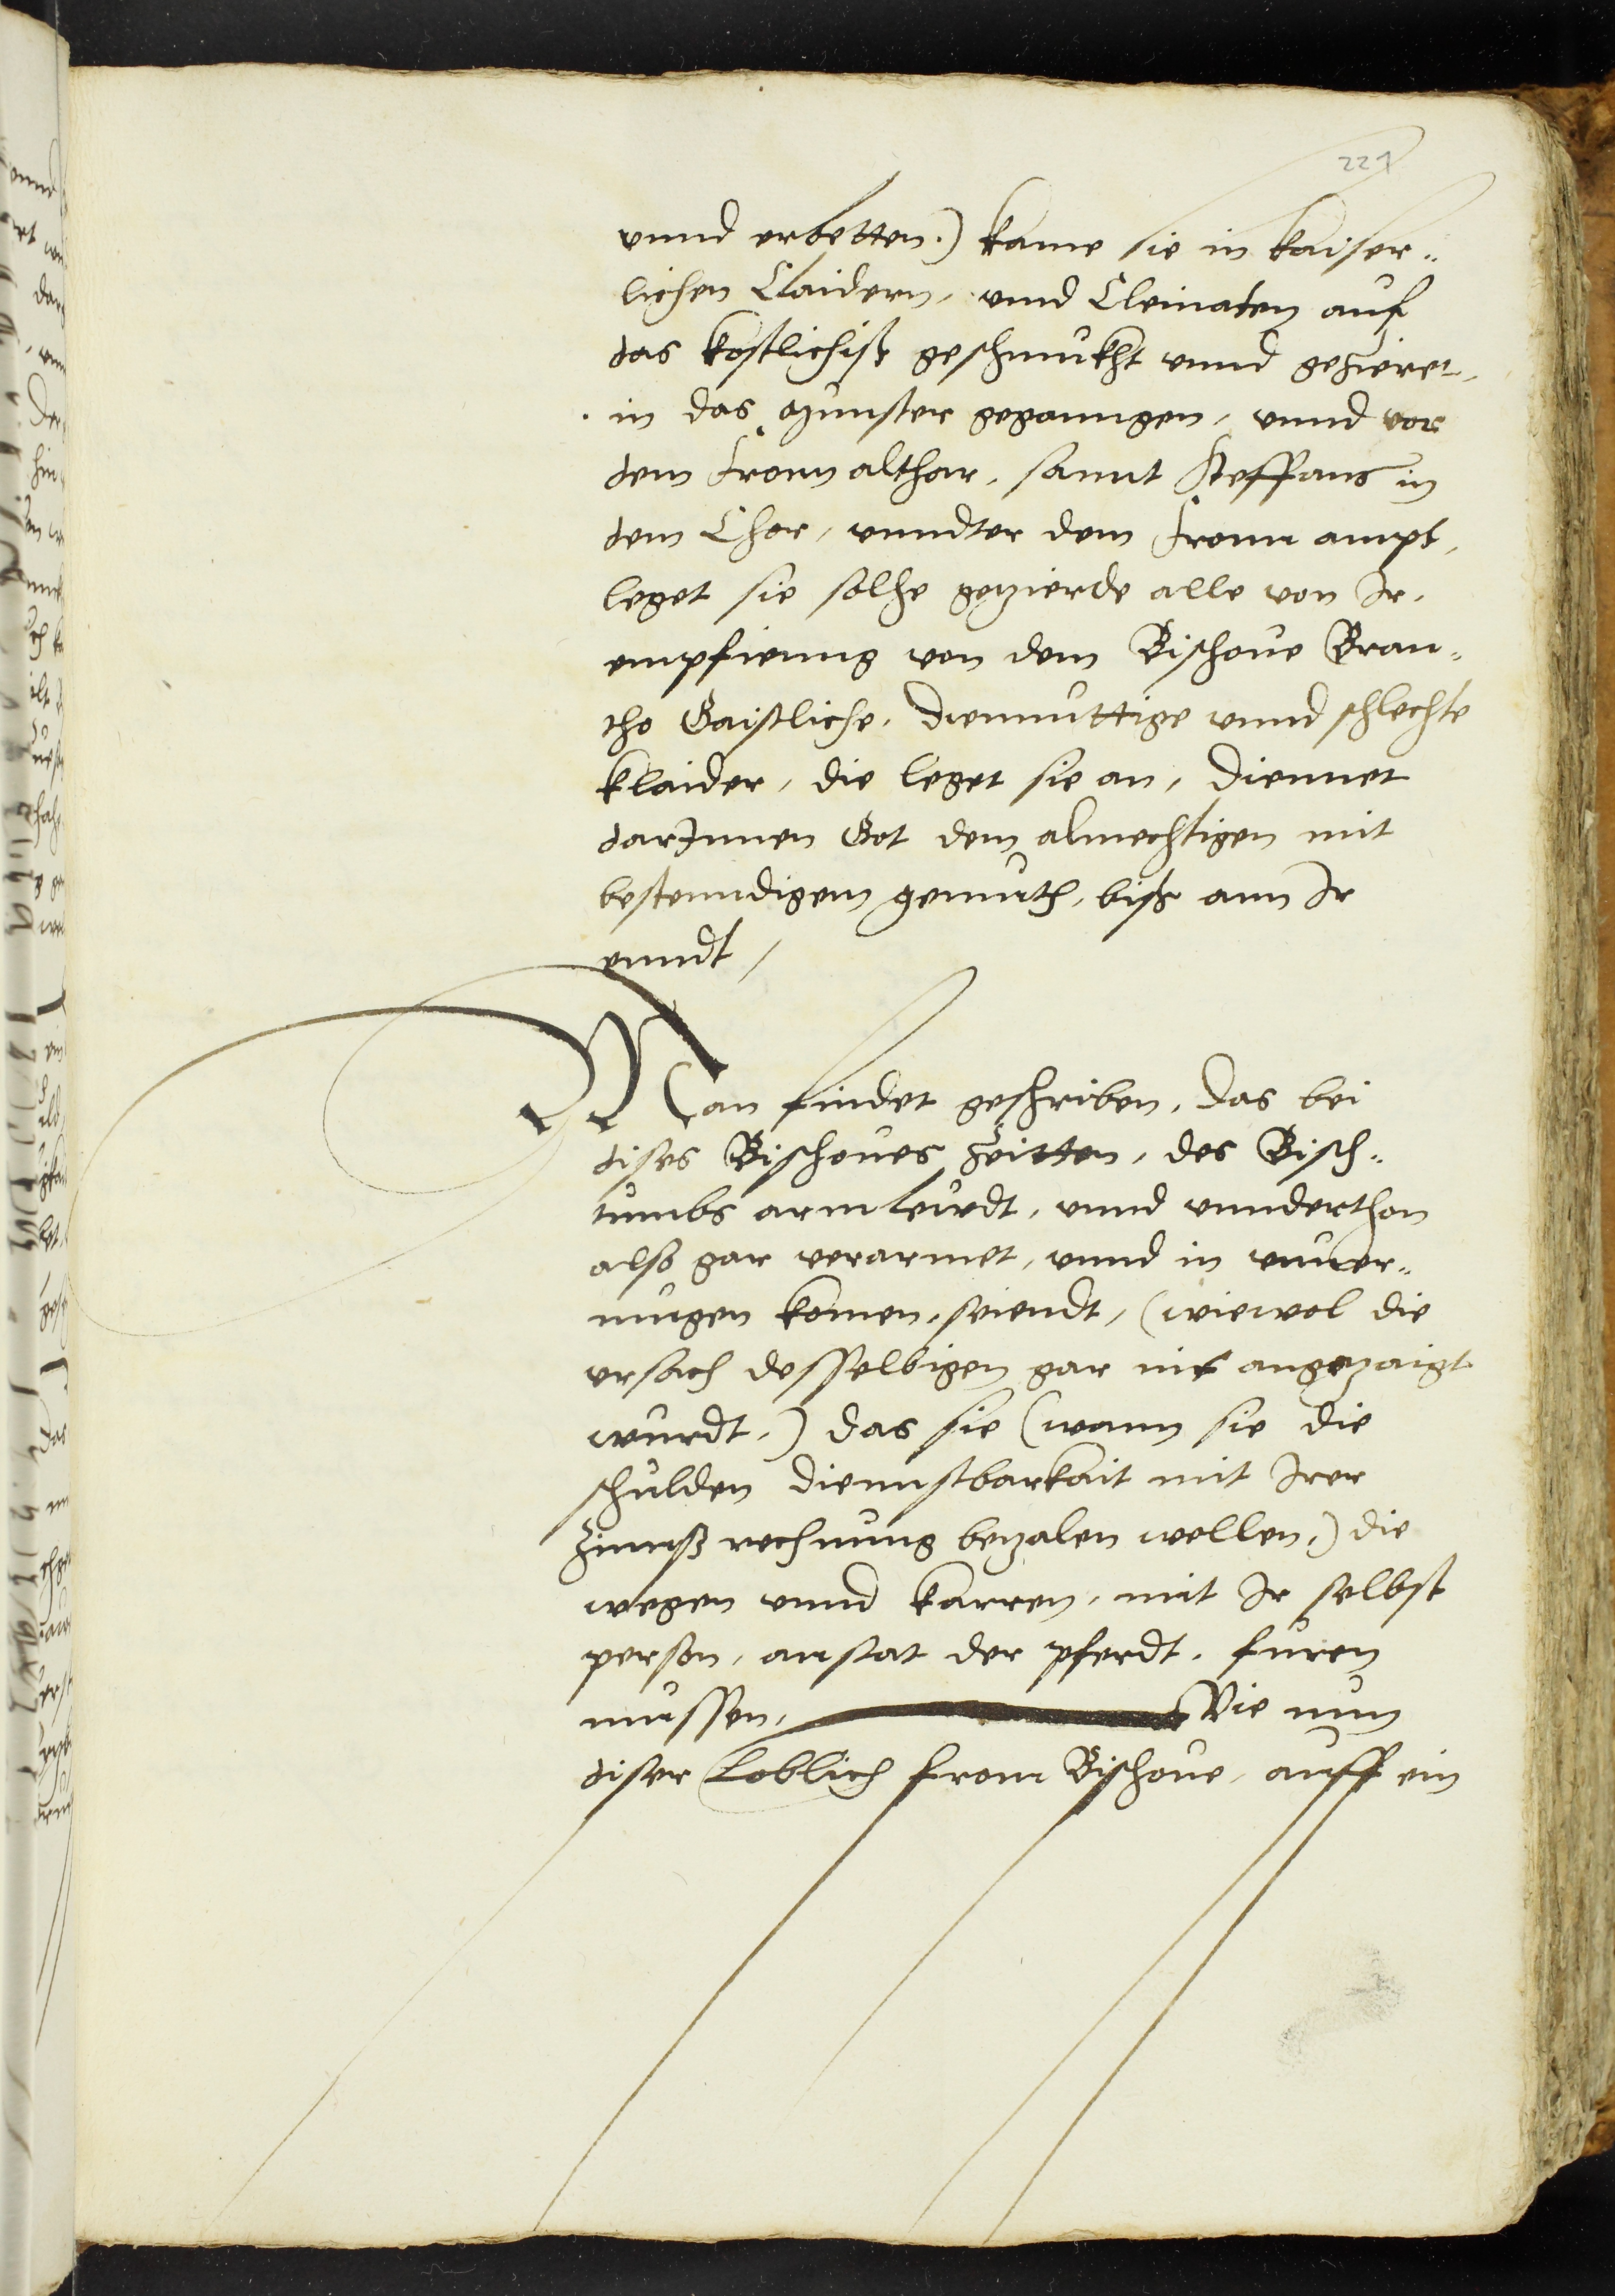 221
vnnd erbetten.) kame sie in kaiser„
lichen Claidern, vnnd Cleinaten auf
das kostlichist geschmukht vnnd gezieret,
in das Munster geganngen, vnnd vor
dem Fronn althar, sannt Steffans in
dem Chor, vnndter dem Fronn ampt,
leget sie solhe gezierde alle von Ir,
empfienng von dem Bischoue Bran„
tho Gaistliche, Diemuttige vnnd schlechte
klaider, die leget sie an, Diennet
darInnen Got dem almechtigen mit
bestenndigem gemuth, biß ann Ir
enndt,
Man findet geschriben, das bei
dises Bischoues Zeitten, des Bisch„
tumbs armleudt, vnnd vnnderthon
also gar verarmet, vnnd in vnuer„
mugen komen, seiendt, (wiewol die
vrsach desselbigen gar nit angezaigt
wurdt,) das sie (wann sie die
schulden diennstbarkait mit Irer
Zinnß rechnung bezalen wellen,) die
wegen vnnd karren, mit Ir selbst
person, anstat der pferdt, furen
mussen, Wie nun
diser Loblich from Bischoue, auff ein